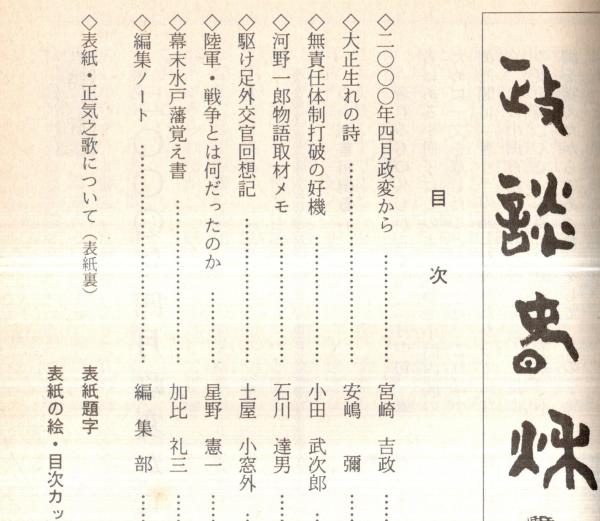 政談春秋
目次
◇二〇〇〇年四月政変から…………宮崎 吉政…
◇大正生れの詩…………安嶋 彌…
◇無責任体制打破の好機…………小田 武次郎…
◇河野一郎物語取材メモ…………石川 達男…
◇駆け足外交官回想記…………土屋 小窓外…
◇陸軍・戦争とは何だったのか…………星野 憲一…
◇幕末水戸藩覚え書…………加比 礼三…
◇編集ノート…………編集部…
◇表紙・正気之歌について（表紙裏）
表紙題字
表紙の絵・目次カッ